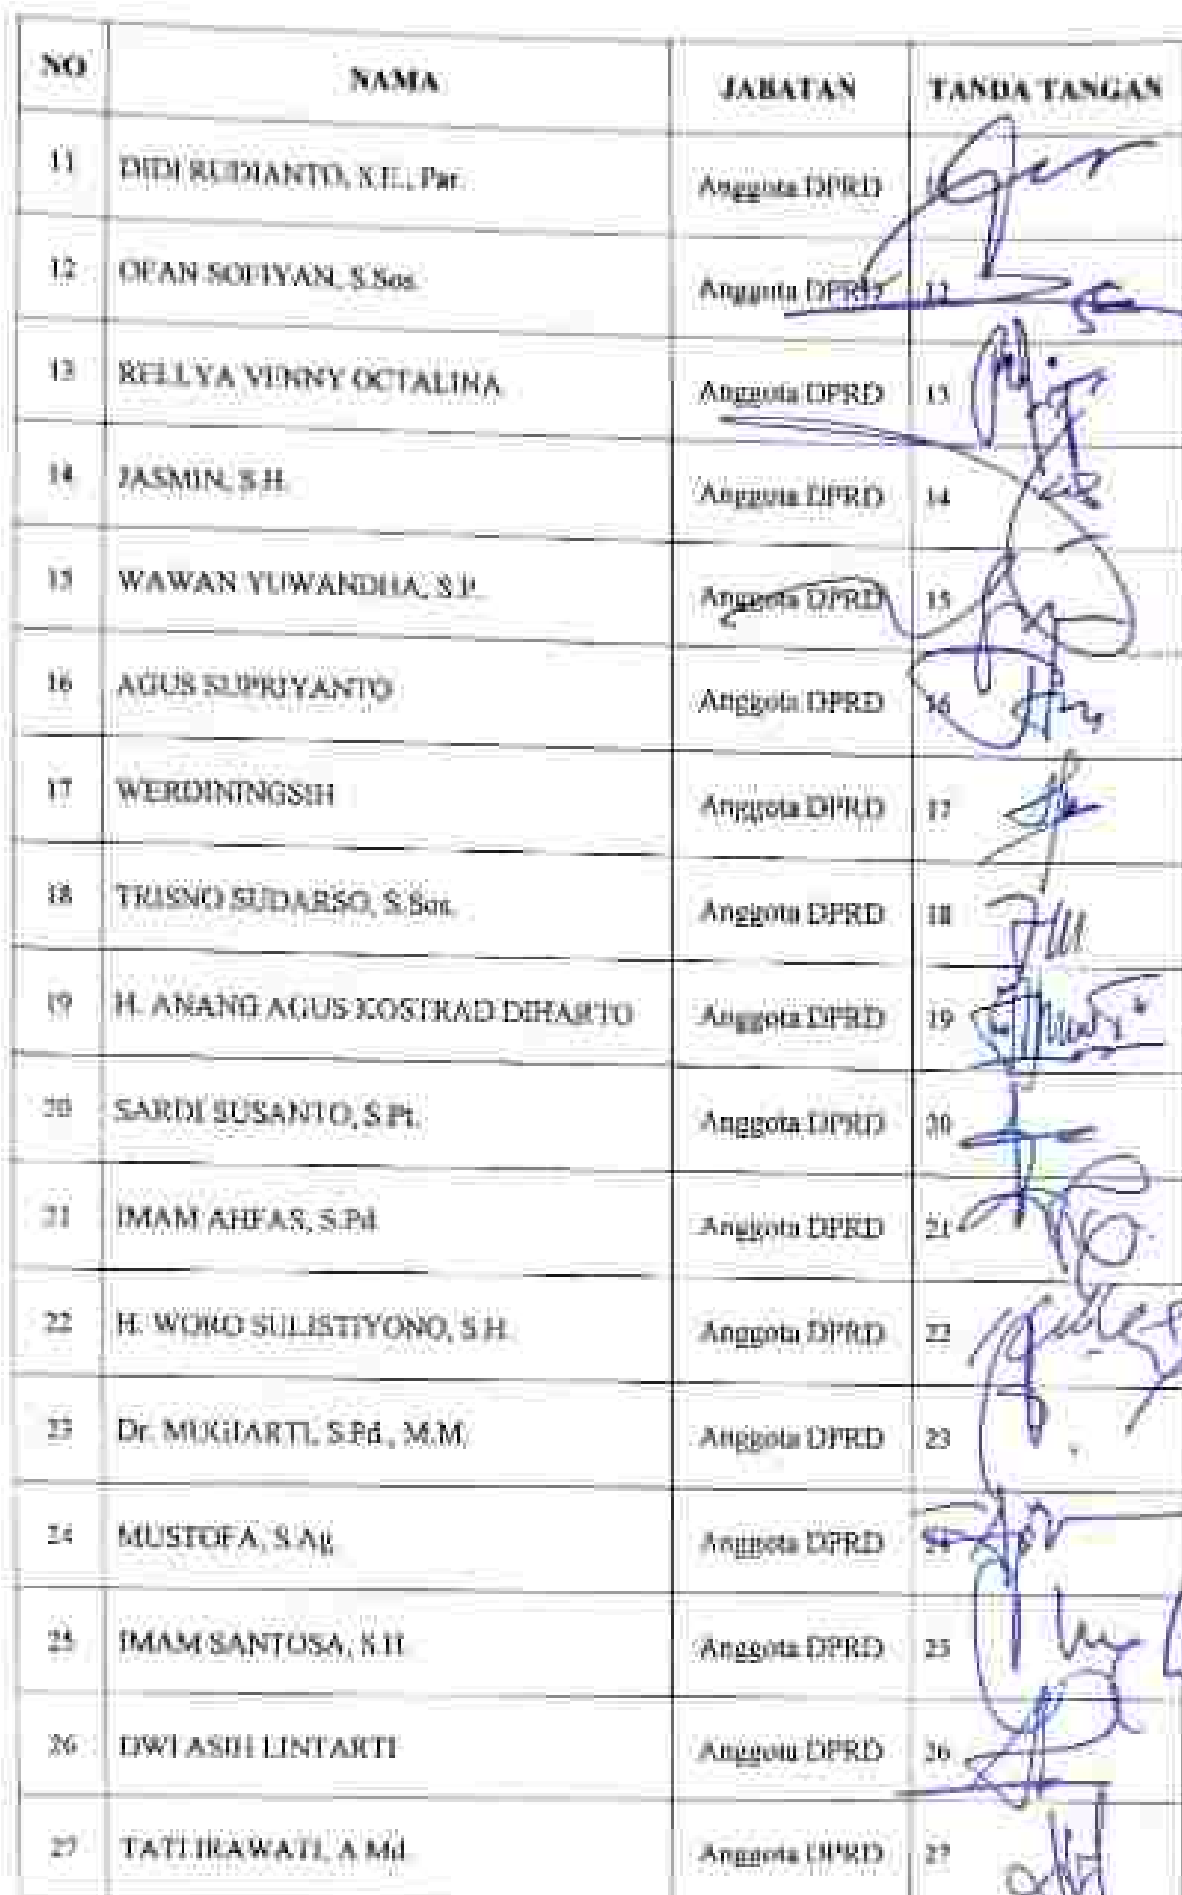 NO NAMA JABATAN TANDA TANGAN
11 DIDI RUDIANTO, S.E., Par. Anggota DPRD 11
12 OFAN SOFIYAN, S.Sos. Anggota DPRD 12
13 RELLYA VENNY OCTALINA Anggota DPRD 13
14 JASMIN, S.H. Anggota DPRD 14
15 WAWAN YUWANDHA, S.P. Anggota DPRD 15
16 AGUS SUPRIYANTO Anggota DPRD 16
17 WERDININGSIH Anggota DPRD 17
18 TRISNO SUDARSO, S.Sos. Anggota DPRD 18
19 H. ANANG AGUS KOSTRAD DIHARTO Anggota DPRD 19
20 SARDI SUSANTO, S.Pt. Anggota DPRD 20
21 IMAM AHFAS, S.Pd. Anggota DPRD 21
22 H. WORO SULISTIYONO, S.H. Anggota DPRD 22
23 Dr. MUGIARTI, S.Pd., M.M. Anggota DPRD 23
24 MUSTOFA, S.Ag. Anggota DPRD 24
25 IMAM SANTOSA, S.H. Anggota DPRD 25
26 DWI ASIH LINTARTI Anggota DPRD 26
27 TATI IRAWATI, A.Md. Anggota DPRD 27